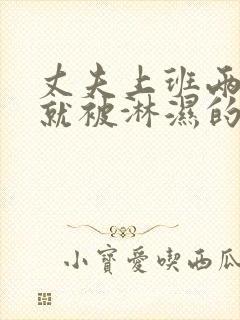 丈夫上班两
就被淋濕的
小寶愛喫西瓜